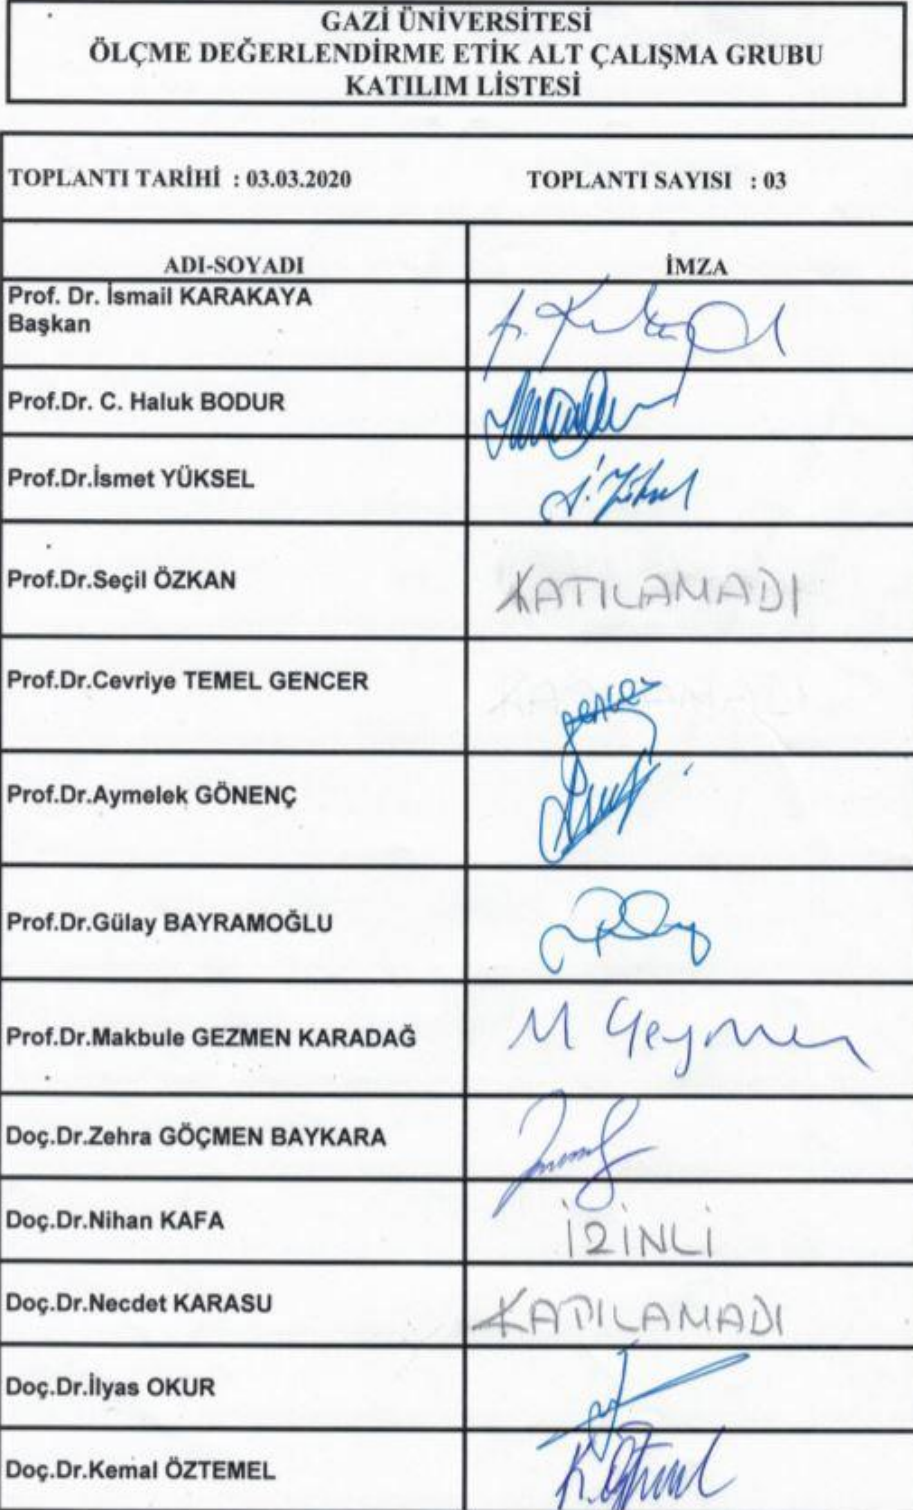 GAZİ ÜNİVERSİTESİ
ÖLÇME DEĞERLENDİRME ETİK ALT ÇALIŞMA GRUBU
KATILIM LİSTESİ
TOPLANTI TARİHİ : 03.03.2020 TOPLANTI SAYISI : 03
ADI-SOYADI İMZA
Prof. Dr. İsmail KARAKAYA
Başkan
Prof.Dr. C. Haluk BODUR
Prof.Dr.İsmet YÜKSEL
Prof.Dr.Seçil ÖZKAN KATILAMADI
Prof.Dr.Cevriye TEMEL GENCER
Prof.Dr.Aymelek GÖNENÇ
Prof.Dr.Gülay BAYRAMOĞLU
Prof.Dr.Makbule GEZMEN KARADAĞ M Gezmen
Doç.Dr.Zehra GÖÇMEN BAYKARA
Doç.Dr.Nihan KAFA İZİNLİ
Doç.Dr.Necdet KARASU KATILAMADI
Doç.Dr.İlyas OKUR
Doç.Dr.Kemal ÖZTEMEL